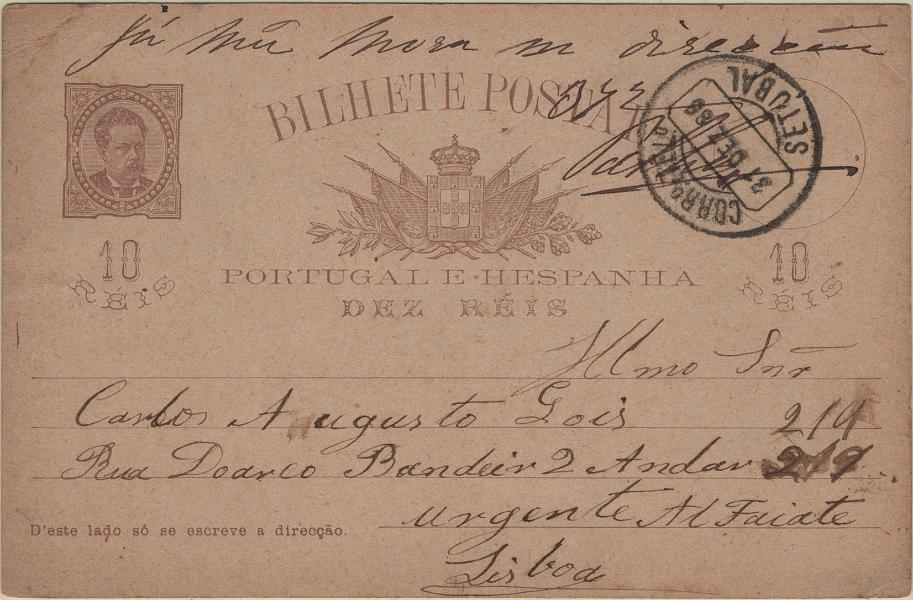 Já não mora na direcção
BILHETE POSTAL
CORREIO
31 DEZ 88
SETUBAL
10 RÉIS
10 RÉIS
PORTUGAL E HESPANHA
DEZ RÉIS
Illmo Snr
Carlos Augusto Gois 219
Rua Do arco Bandeir 2 Andar 219
D'este lado só se escreve a direcção.
urgente Al Faiate
Lisboa